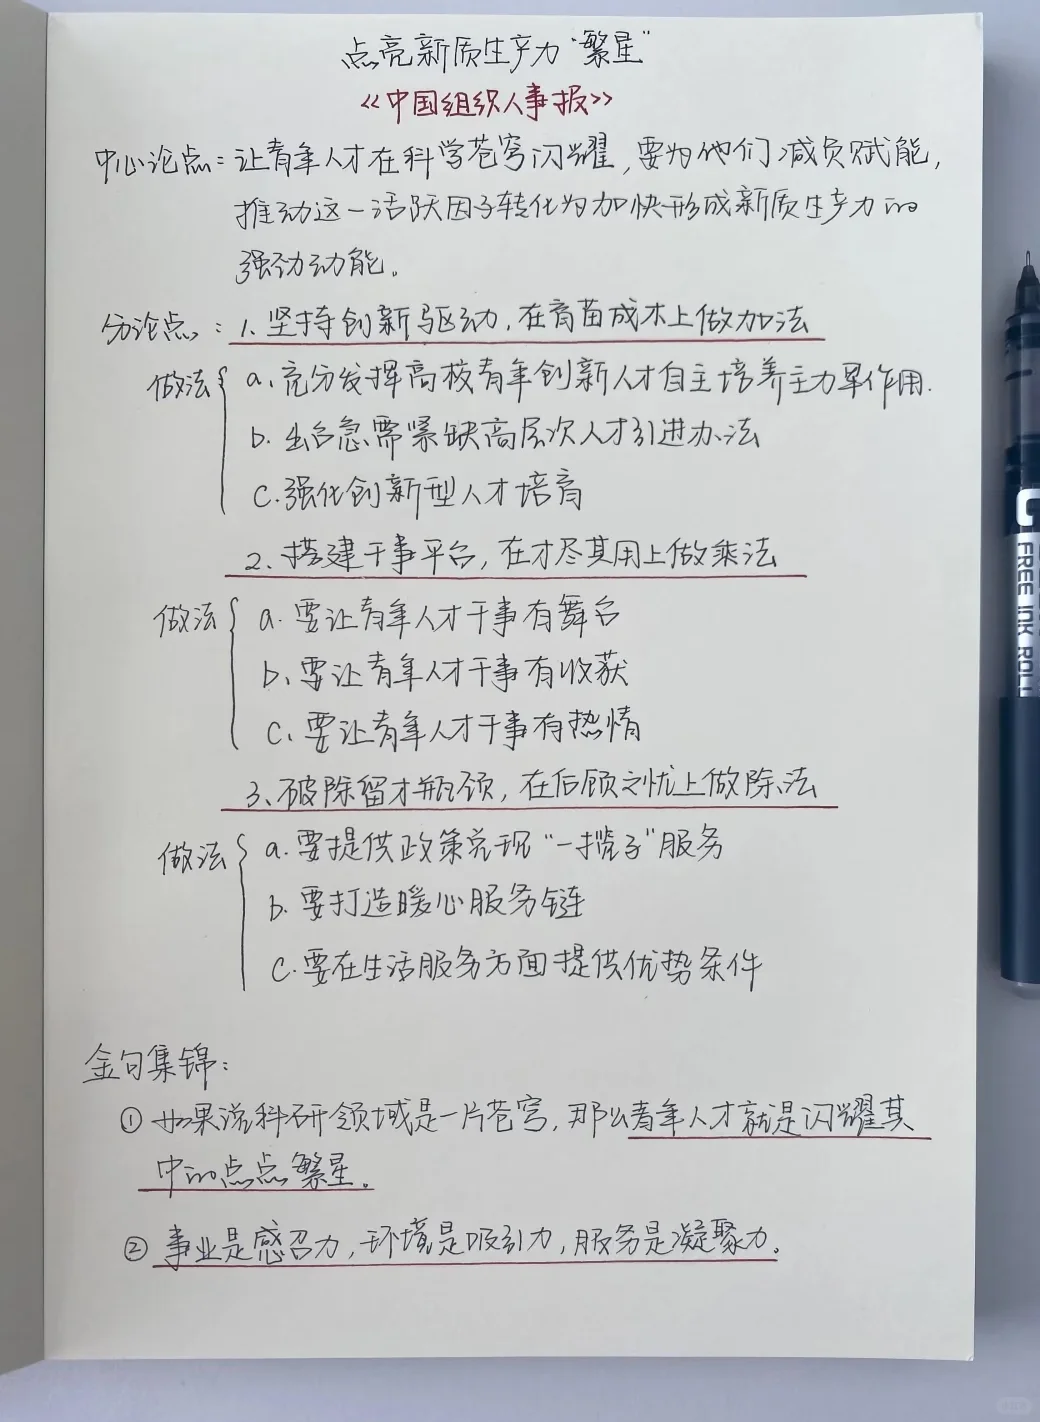 点亮新质生产力“繁星”
《中国组织人事报》
中心论点：让青年人才在科学苍穹闪耀，要为他们减负赋能，
推动这一活跃因子转化为加快形成新质生产力的
强劲动能。
分论点：1、坚持创新驱动，在育苗成木上做加法
做法
a、充分发挥高校青年创新人才自主培养主力军作用.
b. 出台急需紧缺高层次人才引进办法
C.强化创新型人才培育
2、搭建干事平台，在才尽其用上做乘法
做法
a. 要让青年人才干事有舞台
b、要让青年人才干事有收获
C、要让青年人才干事有热情
3、破除留才瓶颈，在后顾之忧上做除法
做法
a.要提供政策兑现“一揽子”服务
b.要打造暖心服务链
C.要在生活服务方面提供优势条件
金句集锦：
① 如果说科研领域是一片苍穹，那么青年人才就是闪耀其
中的点点繁星。
② 事业是感召力，环境是吸引力，服务是凝聚力。
C
FREE INK ROLL